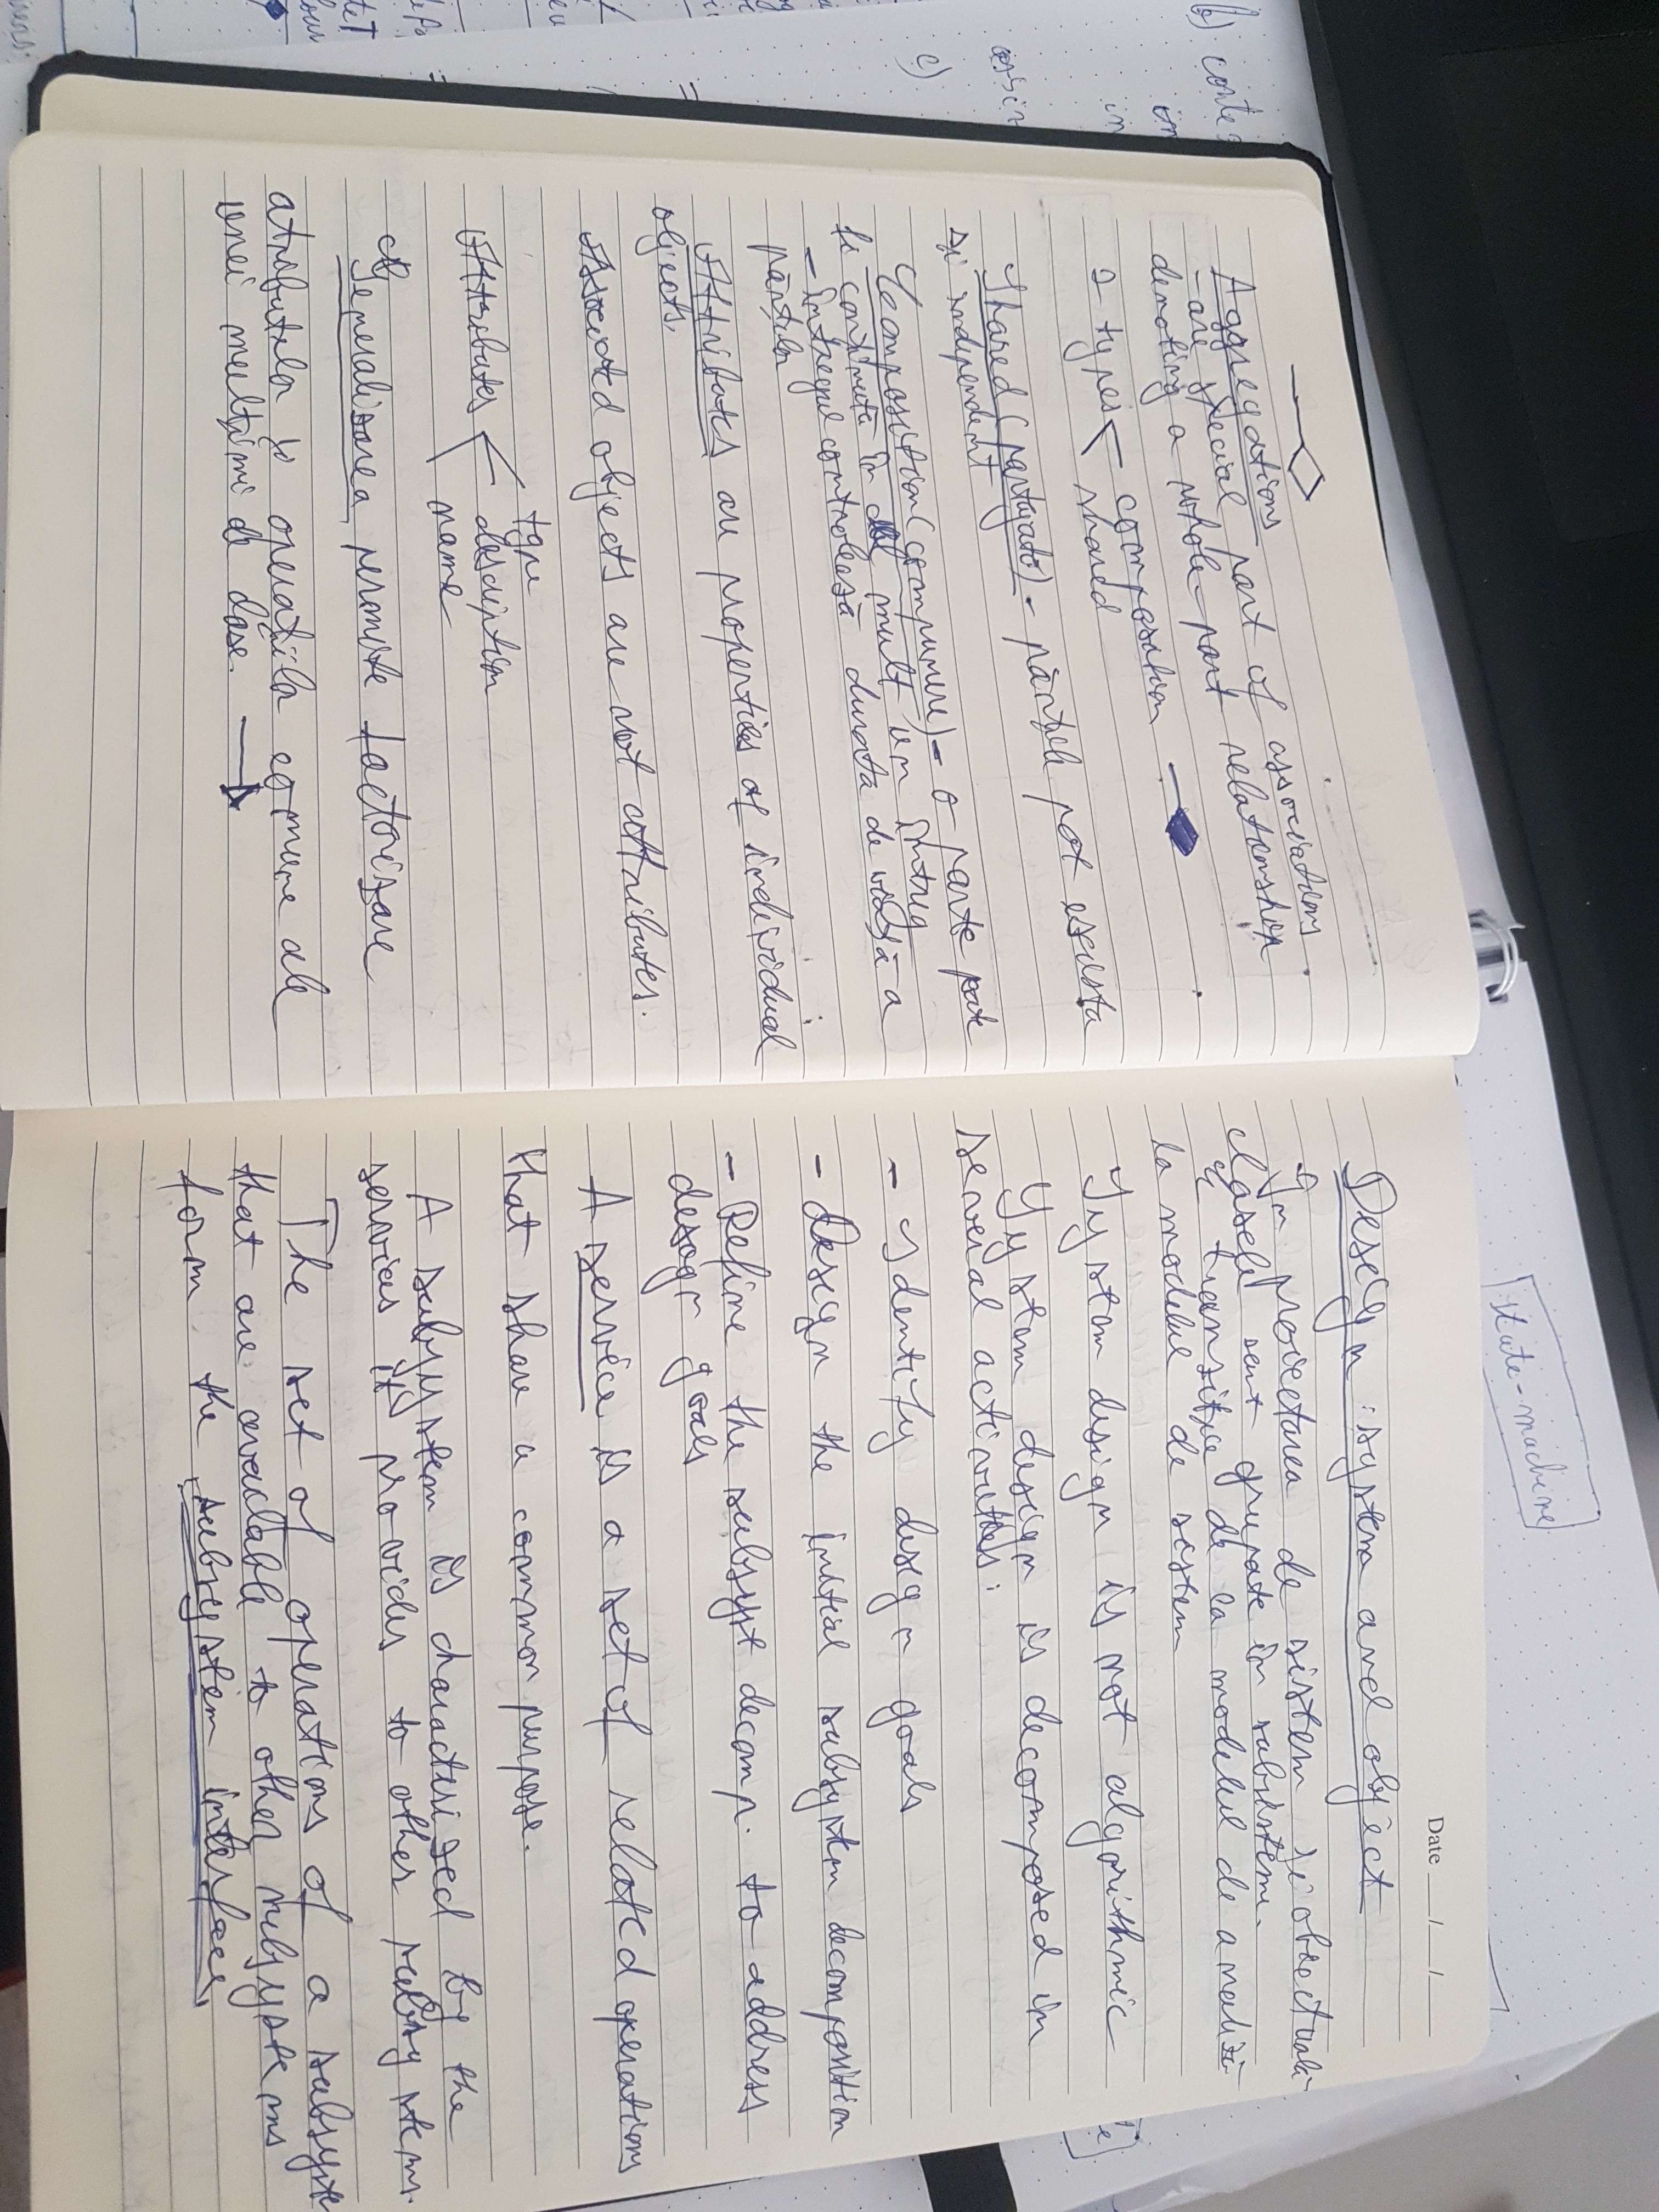 Aggregations
- are special part of associations
denoting a whole-part relationship
2 types
composition
shared
Shared (partajată) - părțile pot exista
și independent
Composition (compunere) - o parte poate
fi conținută în cel mult un întreg
- întregul controlează durata de viață a
părților
Attributes are properties of individual
objects.
Associated objects are not attributes.
Attributes
type
description
name
Generalizarea permite factorizare
atributelor și operațiilor comune ale
unei mulțimi de clase.
Date __/__/__
Design: system and object
În proiectarea de sistem și obiectuală
clasele sunt grupate în subsisteme.
tranziție de la modelul de analiză
la modelul de sistem
System design is not algorithmic
System design is decomposed in
several activities:
- Identify design goals
- Design the initial subsystem decomposition
- Refine the subsyst decomp. to address
design goals
A service is a set of related operations
that share a common purpose.
A subsystem is characterized by the
services it provides to other subsystems.
The set of operations of a subsyste
that are available to other subsystems
form the subsystem interface.
state-machine
b) conte
in
in
c)